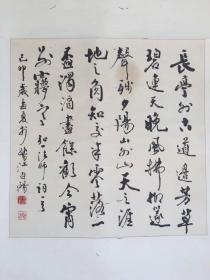 長亭外古道邊芳草
碧連天晚風拂柳笛
聲殘夕陽山外山天之涯
地之角知交半零落一
壺濁酒盡餘歡今宵
別夢寒 弘一法師詞
己卯歲